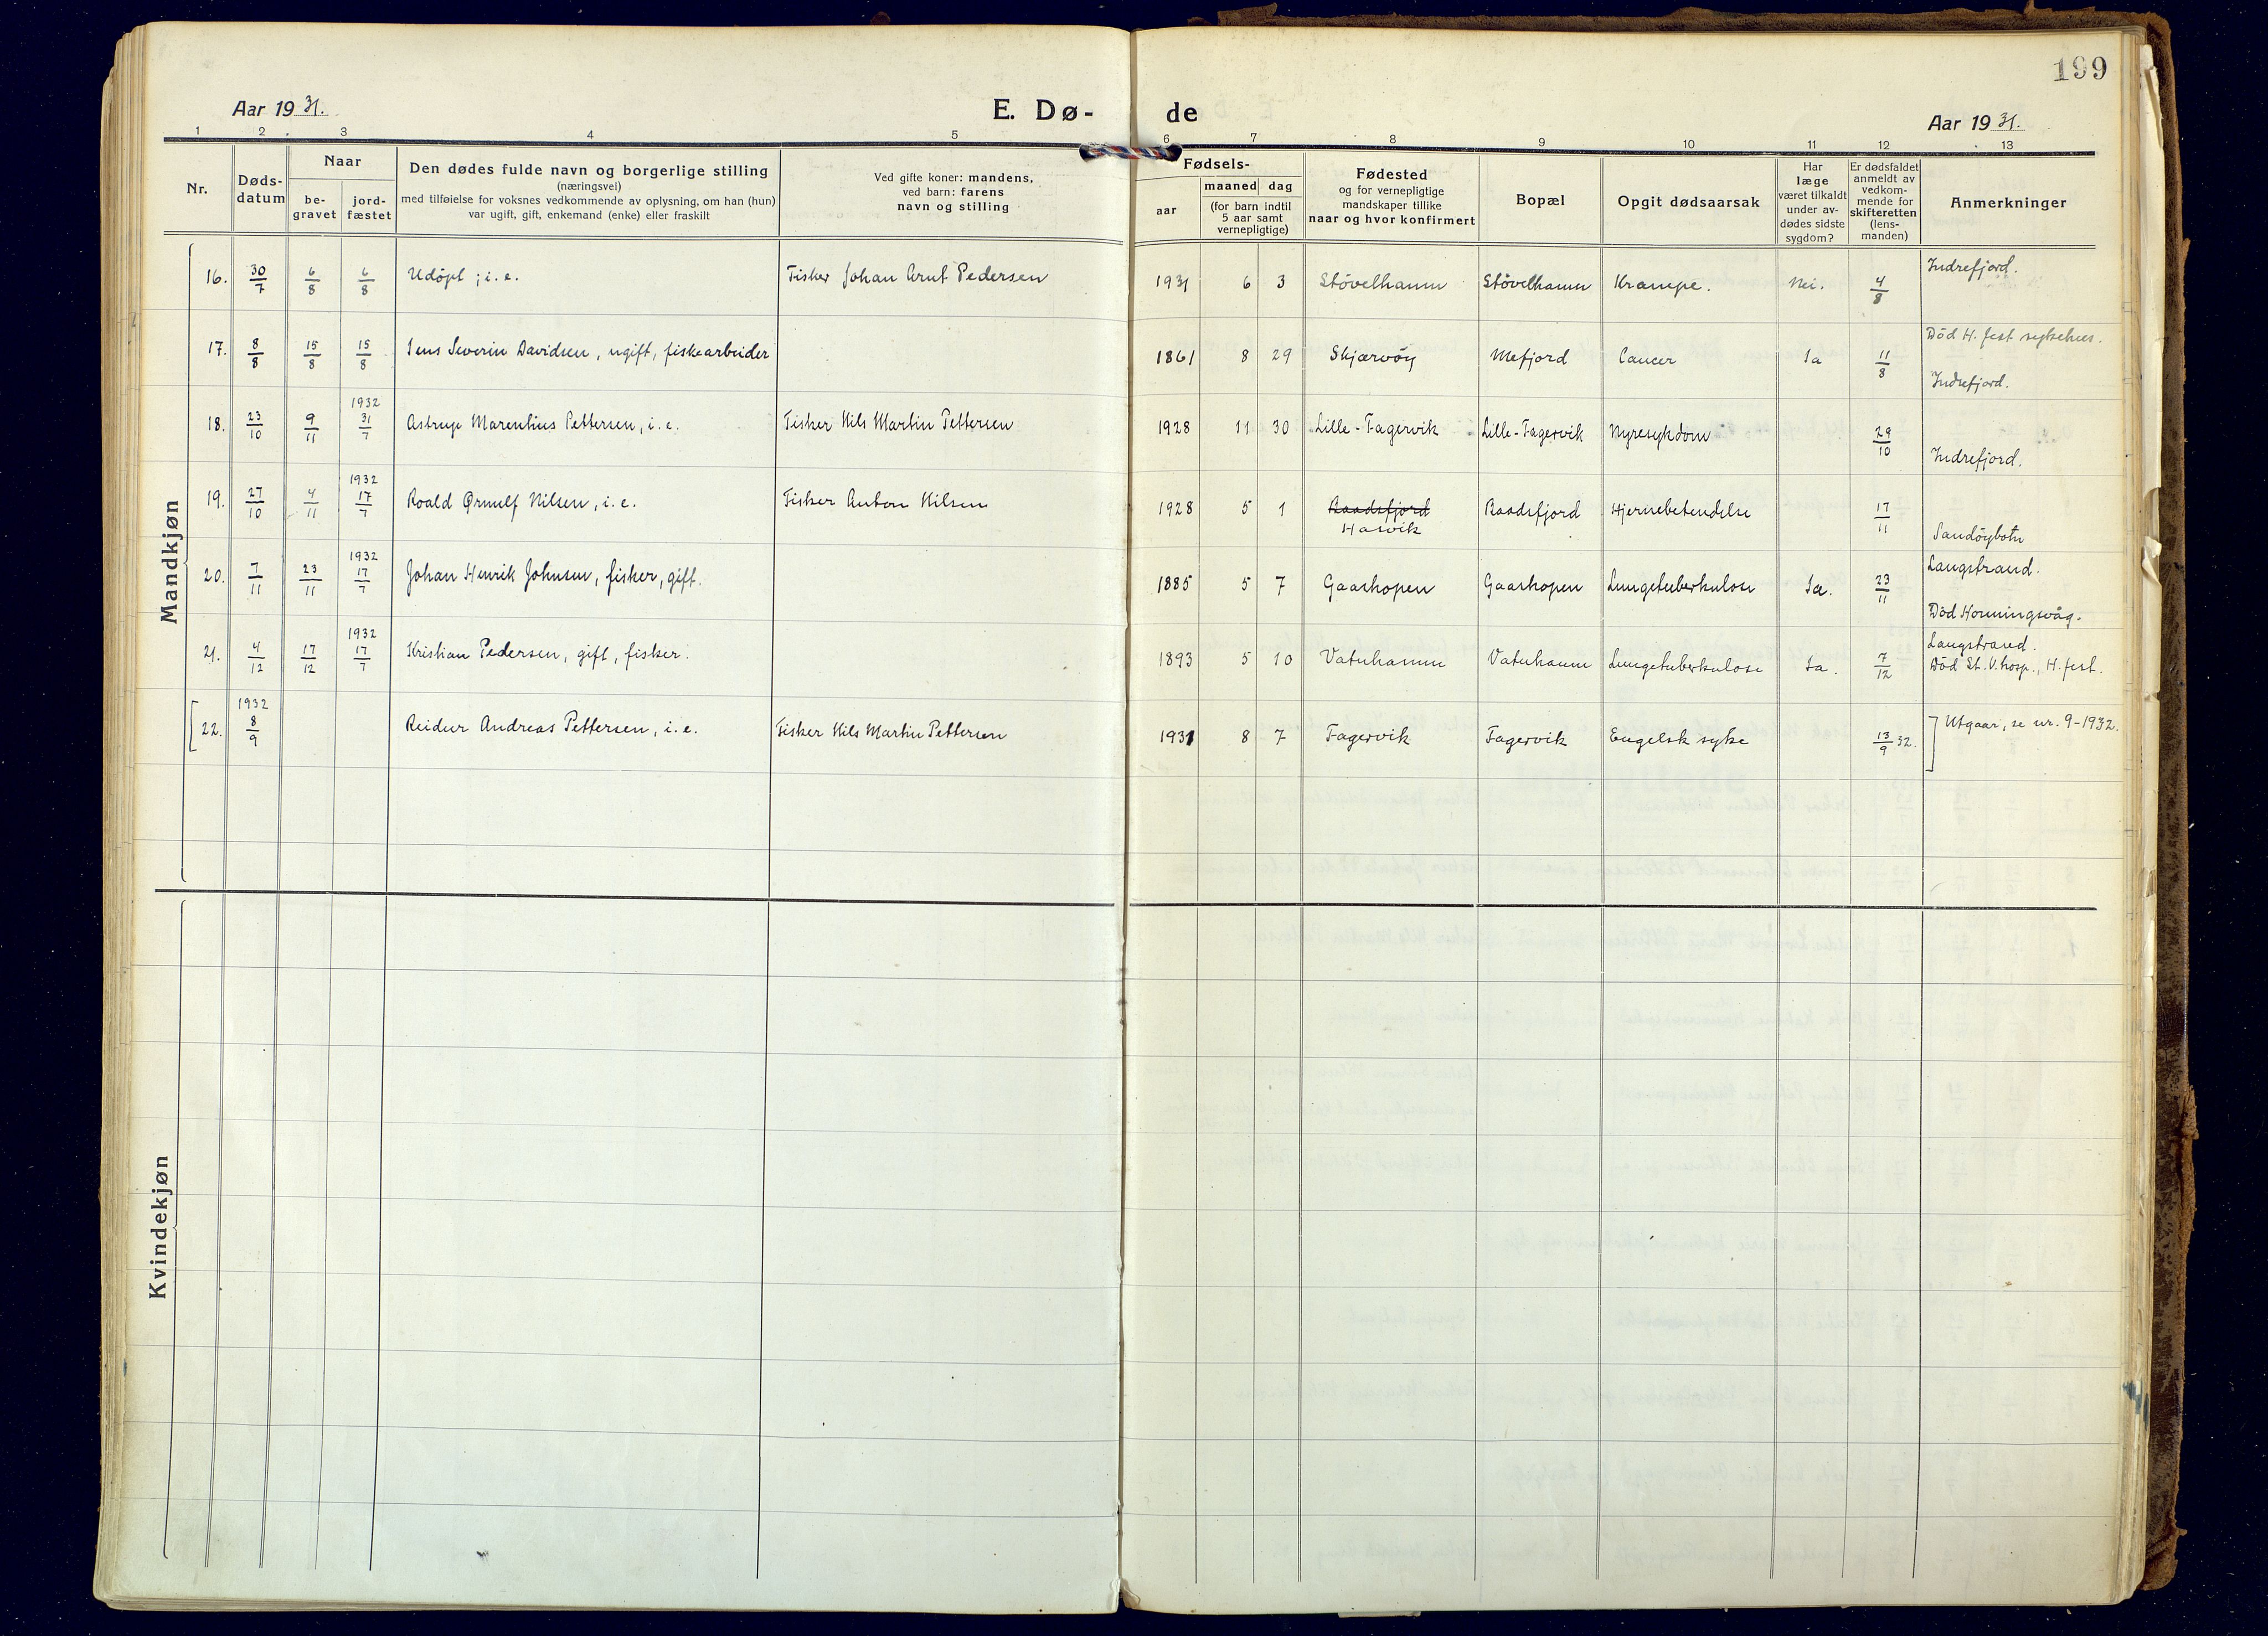 199
Aar 19 31.
E. Dø- de
Aar 19 31.
1 2 3 4 5 6 7 8 9 10 11 12 13
Nr.
Døds-
datum
Naar
be-
gravet
jord-
fæstet
Den dødes fulde navn og borgerlige stilling
(næringsvei)
med tilføielse for voksnes vedkommende av oplysning, om han (hun)
var ugift, gift, enkemand (enke) eller fraskilt
Ved gifte koner: mandens,
ved barn: farens
navn og stilling
Fødsels-
aar
maaned dag
(for barn indtil
5 aar samt
vernepligtige)
Fødested
og for vernepligtige
mandskaper tillike
naar og hvor konfirmert
Bopæl
Opgit dødsaarsak
Har
læge
været tilkaldt
under av-
dødes sidste
sygdom?
Er dødsfaldet
anmeldt av
vedkom-
mende for
skifteretten
(lens-
manden)
Anmerkninger
Mandkjøn
16. 30/7 6/8 6/8 Udöpt, i. e. Fisker Johan Arnt Pedersen 1931 6 3 Stövelhamn Stövelhamn Krampe. Nei. 4/8 Indrefjord.
17. 8/8 15/8 15/8 Jens Severin Davidsen, ugift, fiskearbeider 1861 8 29 Skjærvöy Mefjord Cancer Ja 11/8 Död H. fest sykehus.
Indrefjord.
18. 23/10 9/11 1932 31/7 Astrup Marentius Pettersen, i. e. Fisker Nils Martin Pettersen 1928 11 30 Lille-Fagervik Lille-Fagervik Nyresykdom 29/10 Indrefjord.
19. 27/10 4/11 1932 17/7 Roald Ørnulf Nilsen, i. e. Fisker Anton Nilsen 1928 5 1 Baadsfjord Baadsfjord Hjernebetendelse 17/11 Sandöybotn
Hasvik
20. 7/11 23/11 1932 17/7 Johan Henrik Johnsen, fisker, gift. 1885 5 7 Gaashopen Gaashopen Lungetuberkulose Ja. 23/11 Langstrand.
Död Honningsvåg.
21. 4/12 17/12 1932 17/7 Kristian Pedersen, gift, fisker. 1893 5 10 Vatnhamn Vatnhamn Lungetuberkulose Ja. 7/12 Langstrand.
Död St. V. hosp., H. fest.
[22. 1932 8/9 Reidur Andreas Pettersen, i. e. Fisker Nils Martin Pettersen 1931 8 7 Fagervik Fagervik Engelsk syke 13/9 32. ] Utgaar, se nr. 9-1932.
Kvindekjøn